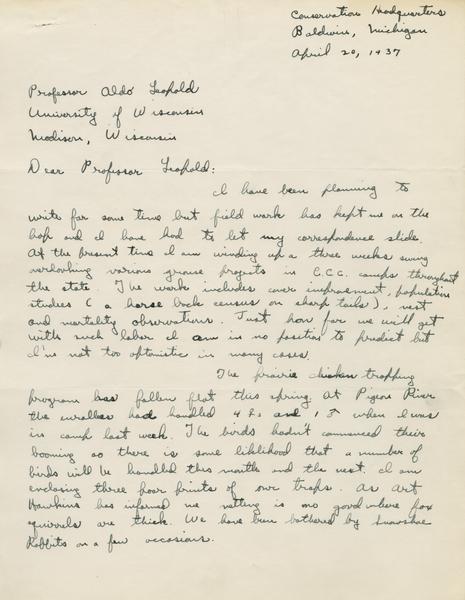 Conservation Headquarters
Baldwin, Michigan
April 20, 1937
Professor Aldo Leopold
University of Wisconsin
Madison, Wisconsin
Dear Professor Leopold:
I have been planning to
write for some time but field work has kept me on the
hop and I have had to let my correspondence slide.
At the present time I am winding up a three weeks swing
overlooking various grouse projects in C.C.C. camps throughout
the state. The work includes cover improvement, population
studies (a horse back census on sharp tails), nest
and mortality observations. Just how far we will get
with such labor I am in no position to predict but
I'm not too optomistic in many cases.
The prairie chicken trapping
program has fallen flat this spring. At Pigeon River
the enrollees had handled 4 ♀s and 1 ♂ when I was
in camp last week. The birds hadn't commenced their
booming so there is some liklihood that a number of
birds will be handled this month and the next. I am
enclosing three poor prints of our traps. As Art
Hawkins has informed me netting is no good where fox
squirrels are thick. We have been bothered by snowshoe
Rabbits on a few occasions.